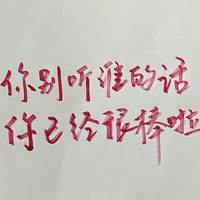 你别听谁的话
你已经很棒啦